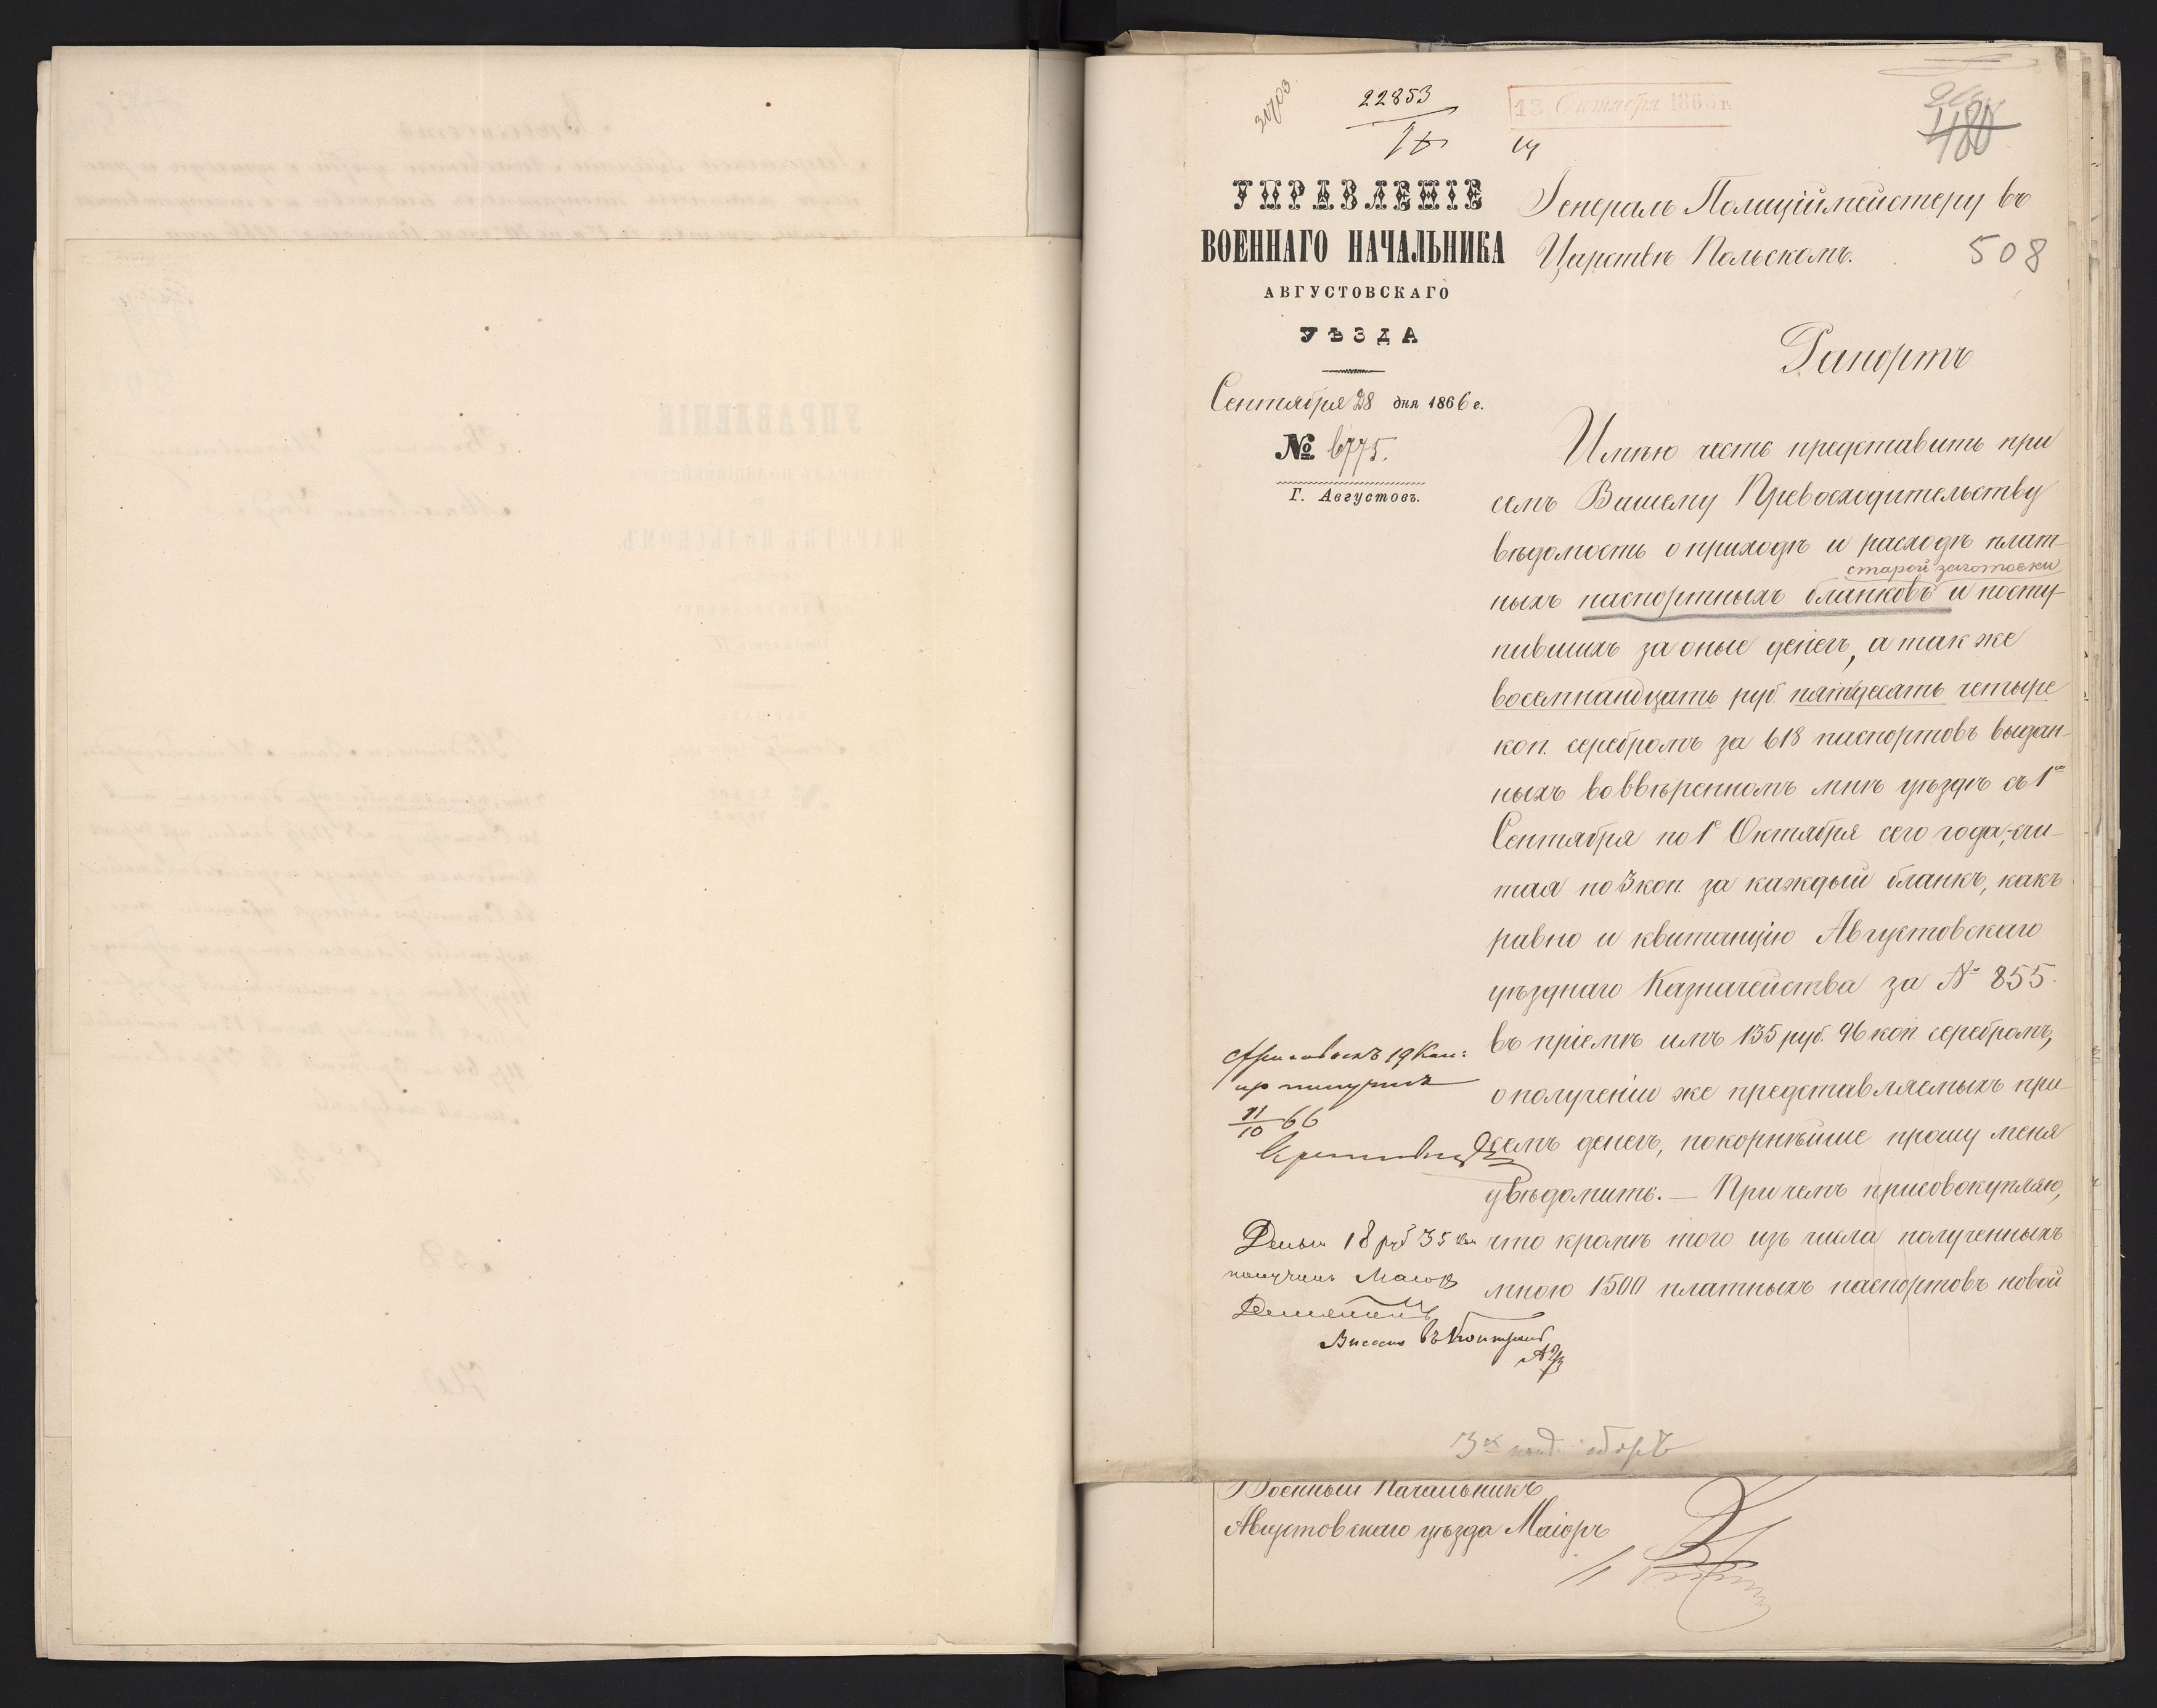 22853
13 Октября 1866 г.
480
УПРАВЛЕНІЕ
ВОЕННАГО НАЧАЛЬНИКА
АВГУСТОВСКАГО
УѢЗДА
Сентября 28 дня 1866 г.
№ 6775.
Г. Августовъ.
Генералъ Полиціймейстеру въ
Царствѣ Польскомъ.
508
Рапортъ
Имѣю честь представить при
семъ Вашему Превосходительству
вѣдомость о приходѣ и расходѣ плат-
старой заготовки
ныхъ паспортныхъ бланковъ и посту-
пившихъ за оные денегъ, а также
восемнандцать руб. пятдесять четыре
коп. серебромъ за 618 паспортовъ выдан-
ныхъ во ввѣренномъ мнѣ уѣздѣ съ 1го
Сентября по 1е Октября сего года, счи-
тая по 3 коп. за каждый бланкъ, какъ
равно и квитанцію Августовскаго
уѣзднаго Казначейства за № 855.
въ пріемѣ имъ 135 руб. 96 коп. серебромъ,
о полученіи же представляемыхъ при
семъ денегъ, покорнѣйше прошу меня
увѣдомить. — Причемъ присовокупляю,
что кромѣ того изъ числа полученныхъ
мною 1500 платныхъ паспортовъ новой
19 Коп:
11/10 66
Деньги 18 руб 35 коп
получилъ Маіоръ
Военный Начальникъ
Августовскаго уѣзда Маіоръ